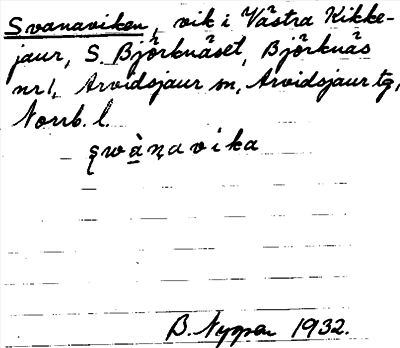 Svanaviken, vik i Västra Kikke-
jaur, S. Björknäset, Björknäs
nr 1, Arvidsjaur sn, Arvidsjaur tg,
Norrb. l.
swànavika
B. Nygren 1932.